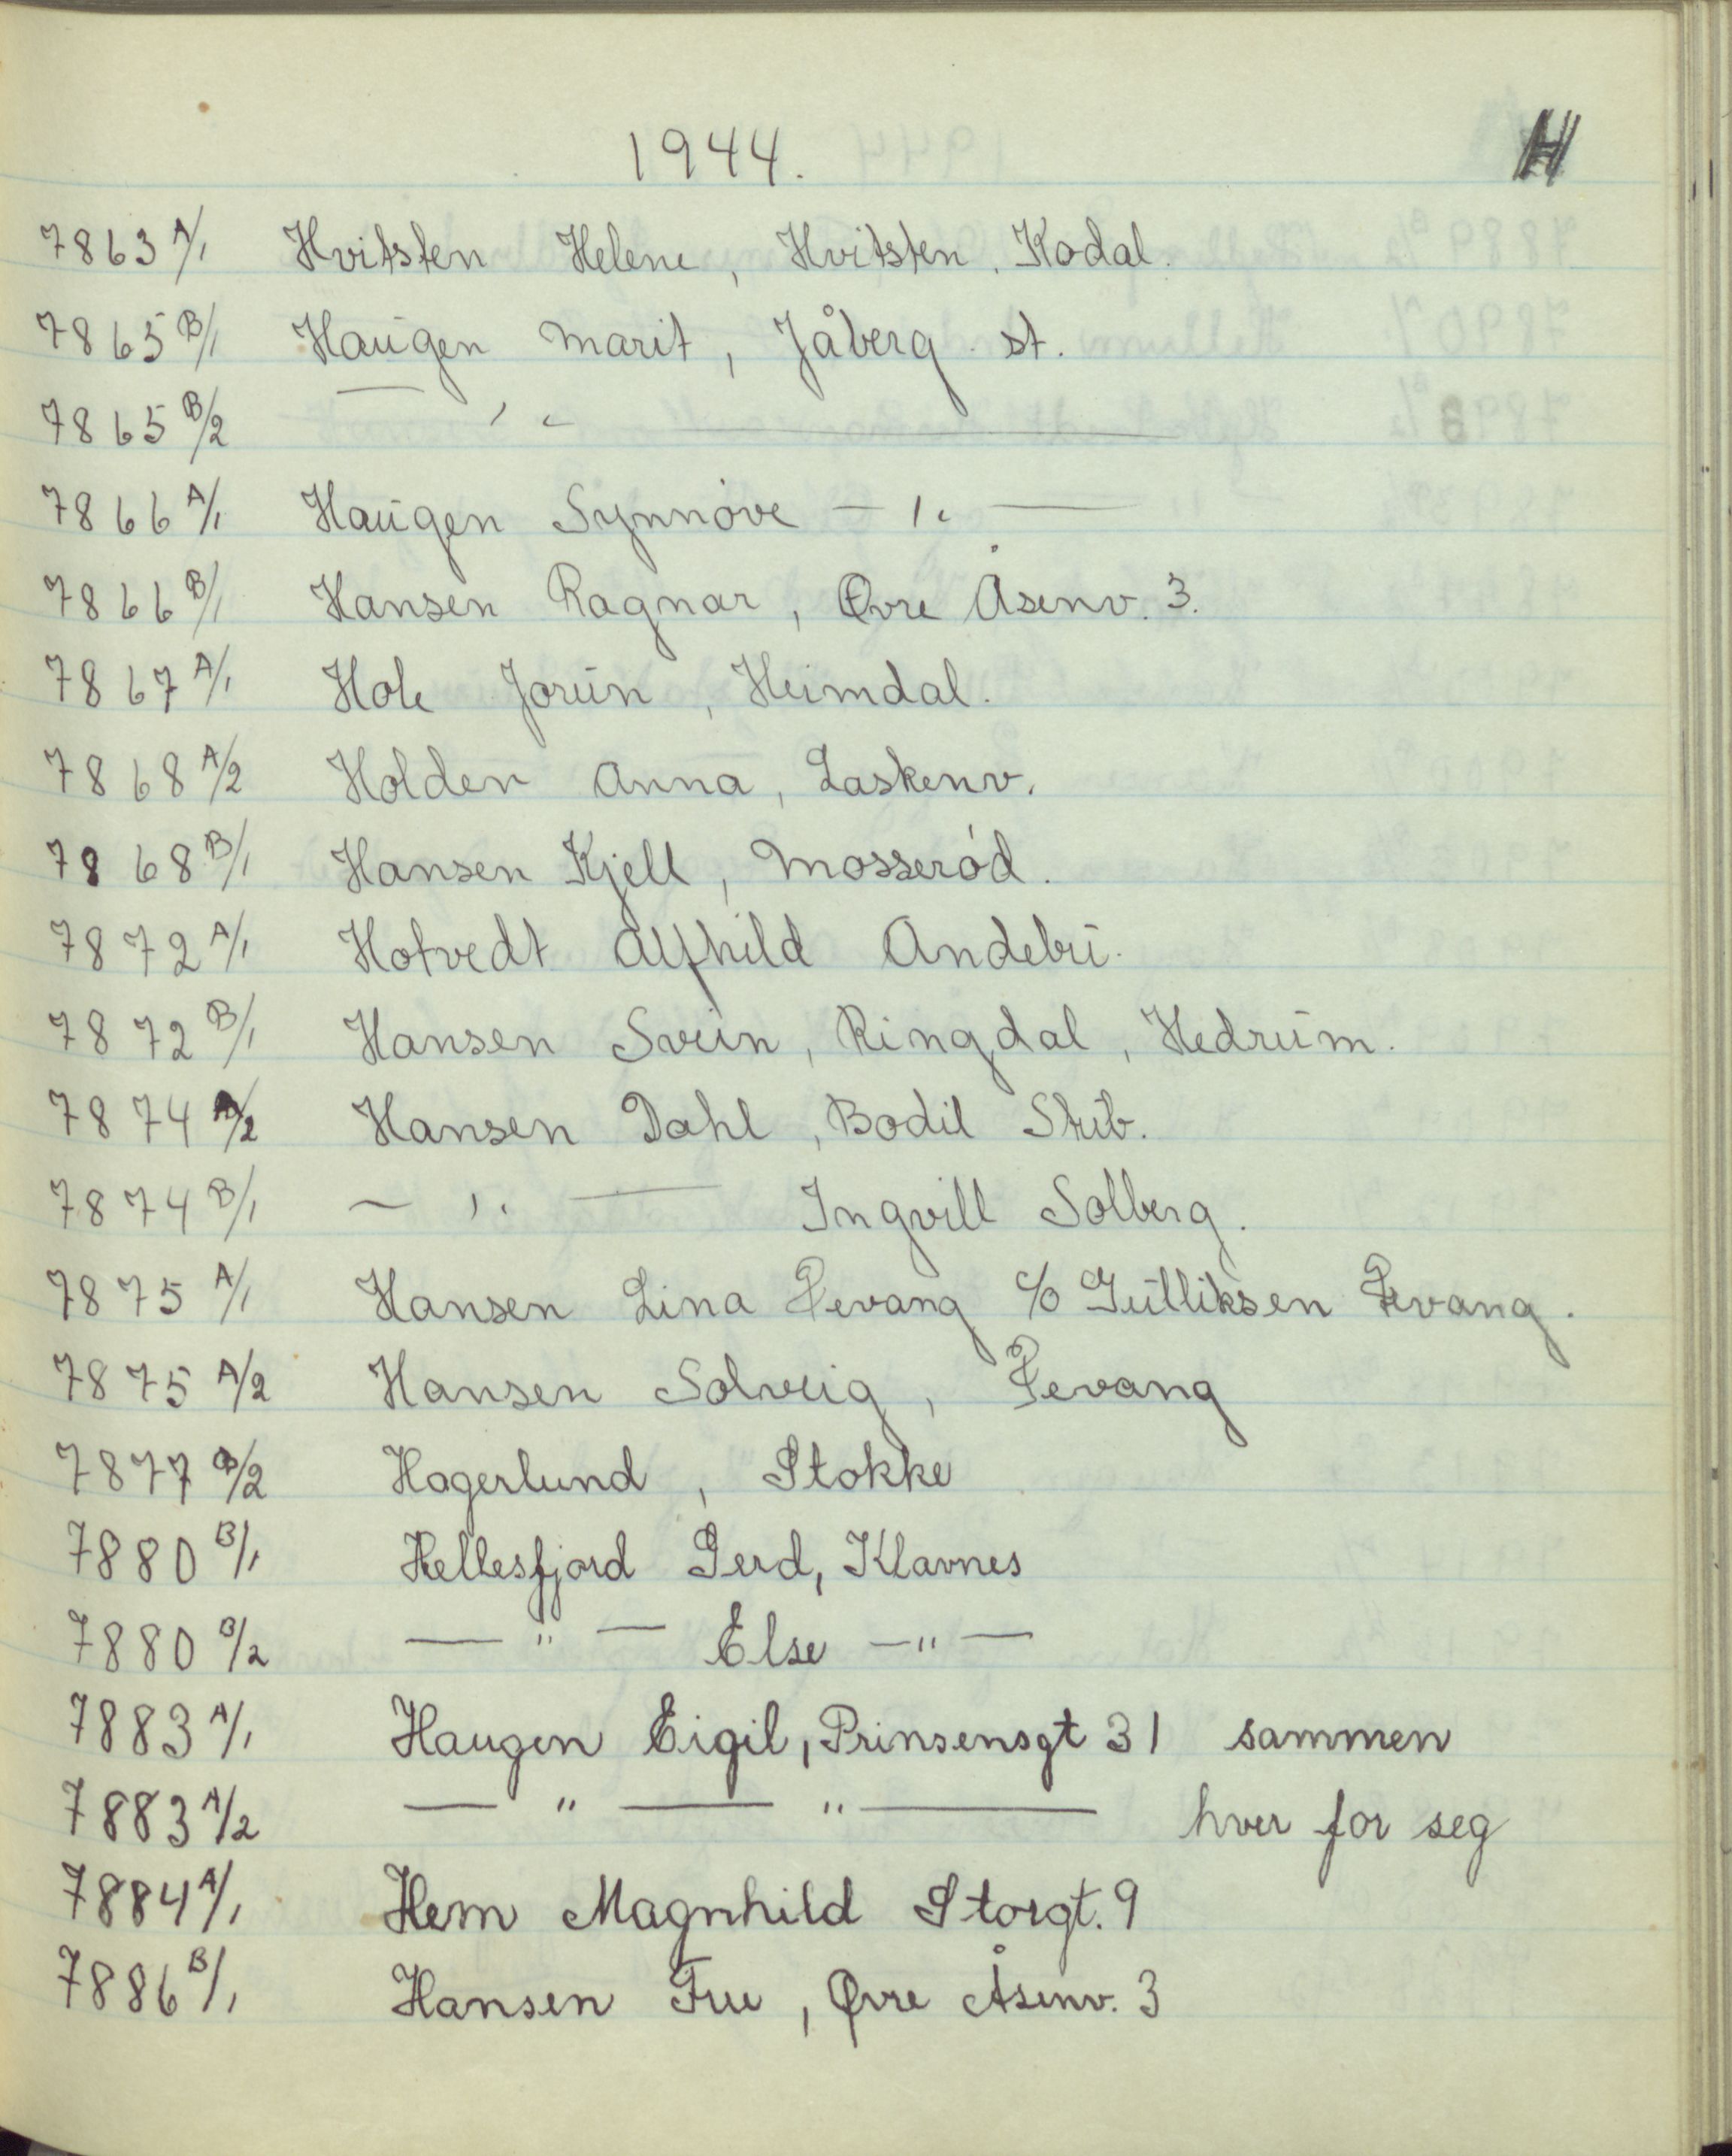 1944.
H
7863 A/1 Hvitsten Helene, Hvitsten. Kodal.
7865 B/1 Haugen Marit, Jåberg st.
7865 B/2 — " —
7866 A/1 Haugen Synnøve — " —
7866 B/1 Hansen Ragnar, Øvre Åsenv. 3.
7867 A/1 Hole Jorun, Heimdal.
7868 A/2 Holden Anna, Laskenv.
7868 B/1 Hansen Kjell, Mosserød.
7872 A/1 Hotvedt Alfhild Andebu.
7872 B/1 Hansen Svein, Ringdal, Hedrum.
7874 A/2 Hansen Dahl, Bodil Stub.
7874 B/1 — " — Ingvill Solberg.
7875 A/1 Hansen Lina Fevang c/o Gulliksen Fevang.
7875 A/2 Hansen Solveig, Fevang
7877 /2 Hagerlund, Stokke
7880 B/1 Hellesfjord Gerd, Klavnes
7880 B/2 — " — Else — " —
7883 A/1 Haugen Eigil, Prinsensgt 31 sammen
7883 A/2 — " — " — hver for seg
7884 A/1 Hem Magnhild Storgt. 9
7886 B/1 Hansen Frue, Øvre Åsenv. 3